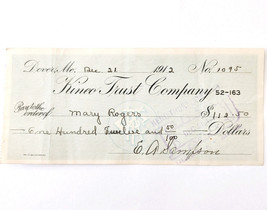 Dover, Me. Dec 21 1912 No. 1095
Kineo Trust Company 52-163
Pay to the order of Mary Rogers $112.50
One Hundred Twelve and 50/100 Dollars
E. A. Sampson